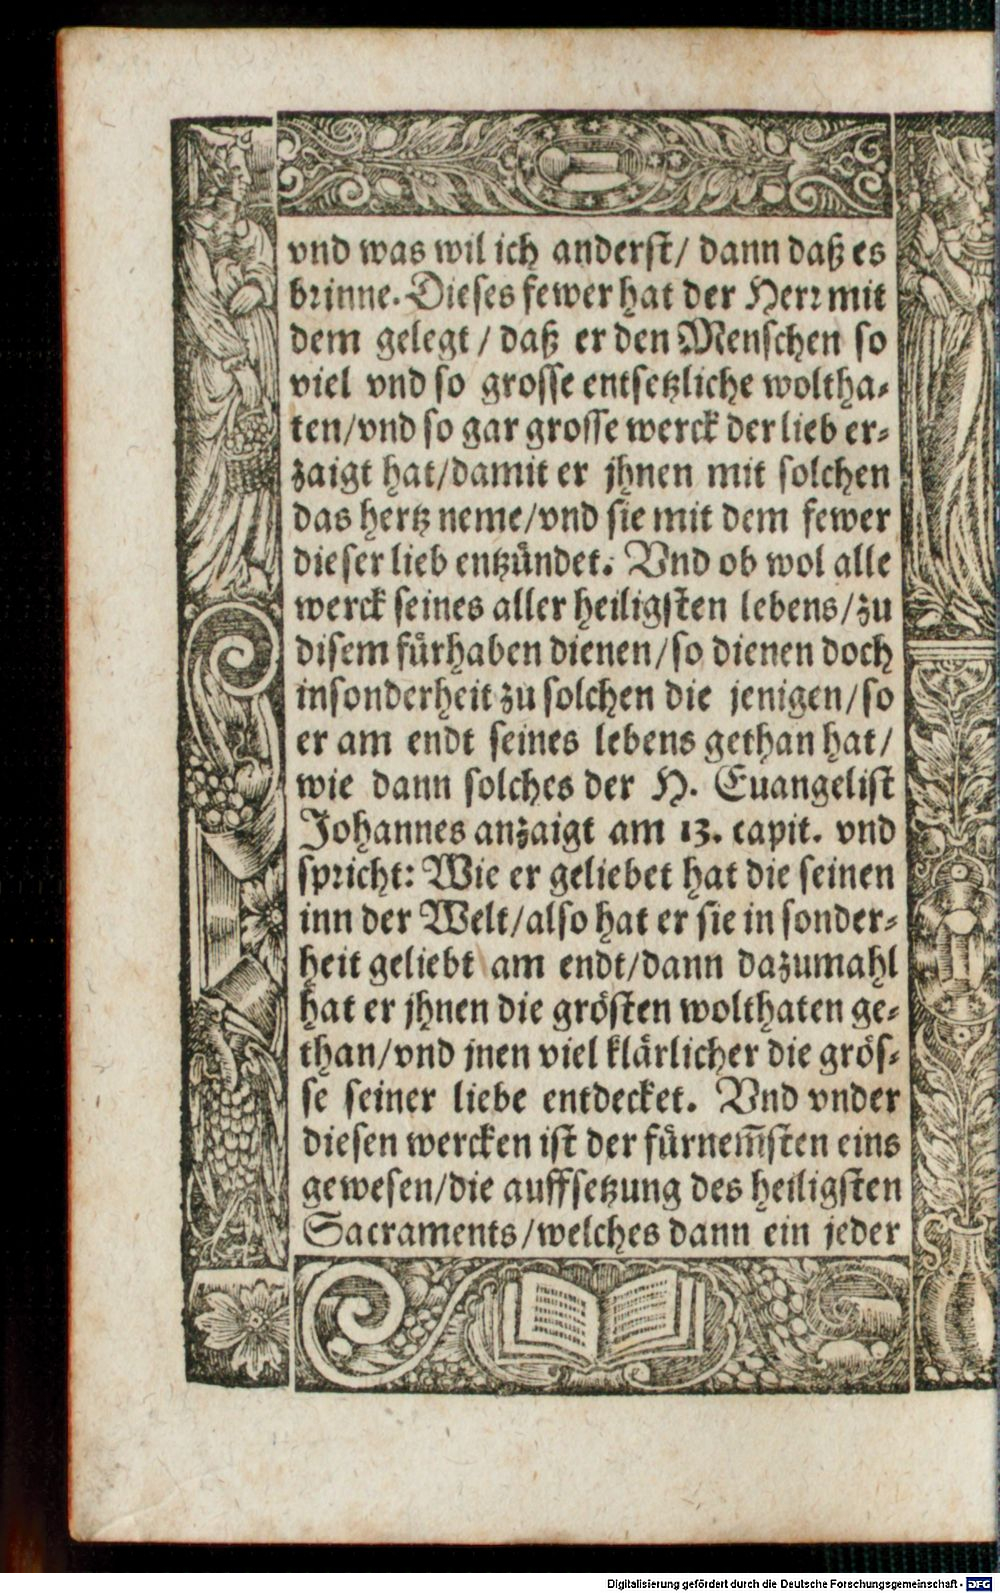 vnd was wil ich anderst/ dann daß es
brinne. Dieses fewer hat der Herr mit
dem gelegt / daß er den Menschen so
viel vnd so grosse entsetzliche woltha-
ten/vnd so gar grosse werck der lieb er-
zaigt hat/damit er jhnen mit solchen
das hertz neme/vnd sie mit dem fewer
dieser lieb entzündet. Vnd ob wol alle
werck seines aller heiligsten lebens/zu
disem fürhaben dienen/so dienen doch
insonderheit zu solchen die jenigen/so
er am endt seines lebens gethan hat/
wie dann solches der H. Euangelist
Johannes anzaigt am 13. capit. vnd
spricht: Wie er geliebet hat die seinen
inn der Welt/also hat er sie in sonder-
heit geliebt am endt/dann dazumahl
hat er jhnen die grösten wolthaten ge-
than/vnd jnen viel klärlicher die grös-
se seiner liebe entdecket. Vnd vnder
diesen wercken ist der fürnem̃sten eins
gewesen/die auffsetzung des heiligsten
Sacraments/welches dann ein jeder
Digitalisierung gefördert durch die Deutsche Forschungsgemeinschaft - DFG